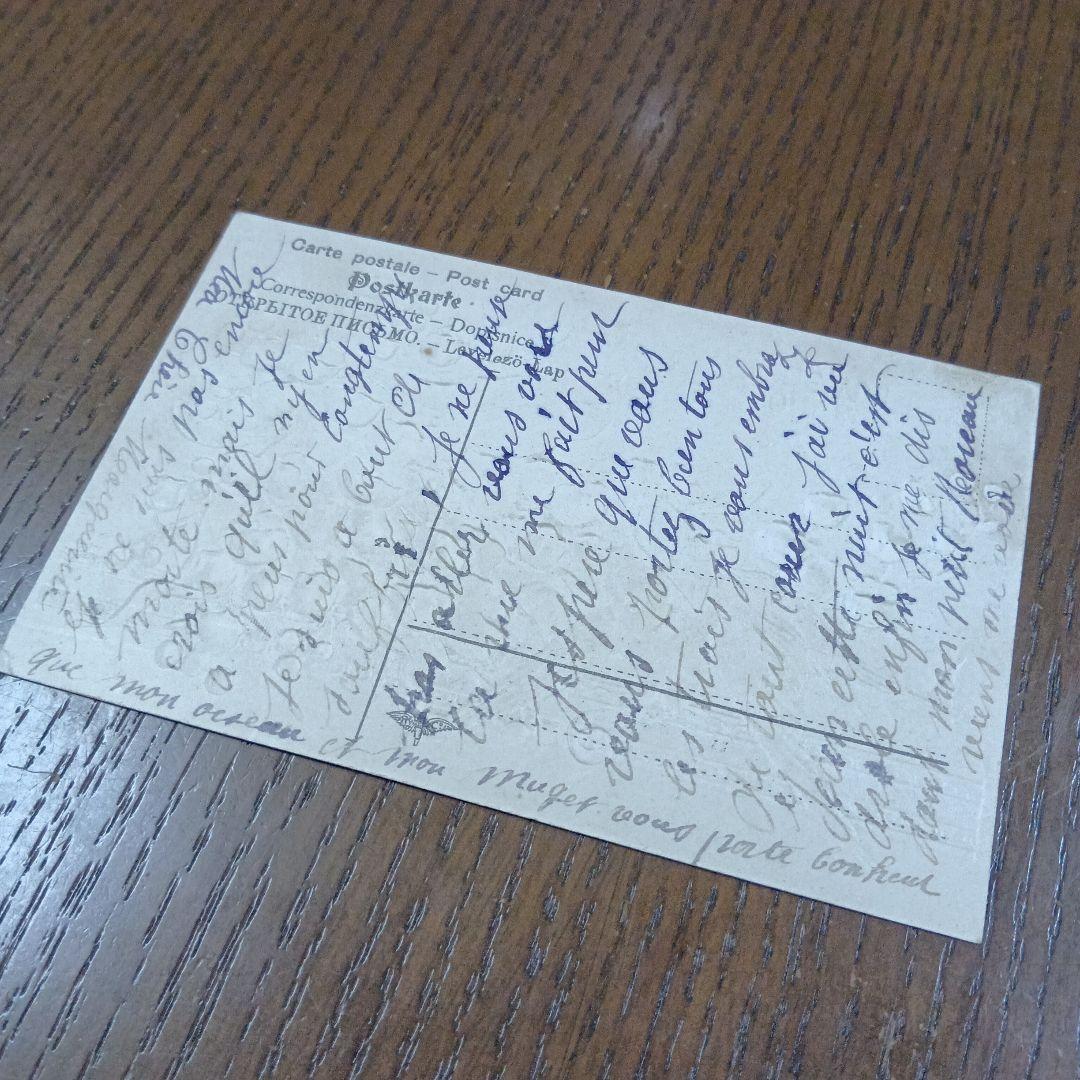 Carte postale – Post card
Postkarte
Correspondenzkarte – Dopisnice
ОТКРЫТОЕ ПИСЬМО. – Levelező-Lap
Ma Chère Marguerite
Je suis pas encore
morte mais je
crois qu'il n'y en
a plus pour longtemps
Je suis à bout de
Je ne peux
pas aller vous voir
la rue me fait peur
J'espère que vous
vous portez bien tous
les trois je vous embrasse
de tout cœur J'ai vu
Jean cette nuit c'est
drôle enfin je me dis
dans mon petit Moreau
viens me voir
que mon oiseau et mon Muget vous porte bonheur